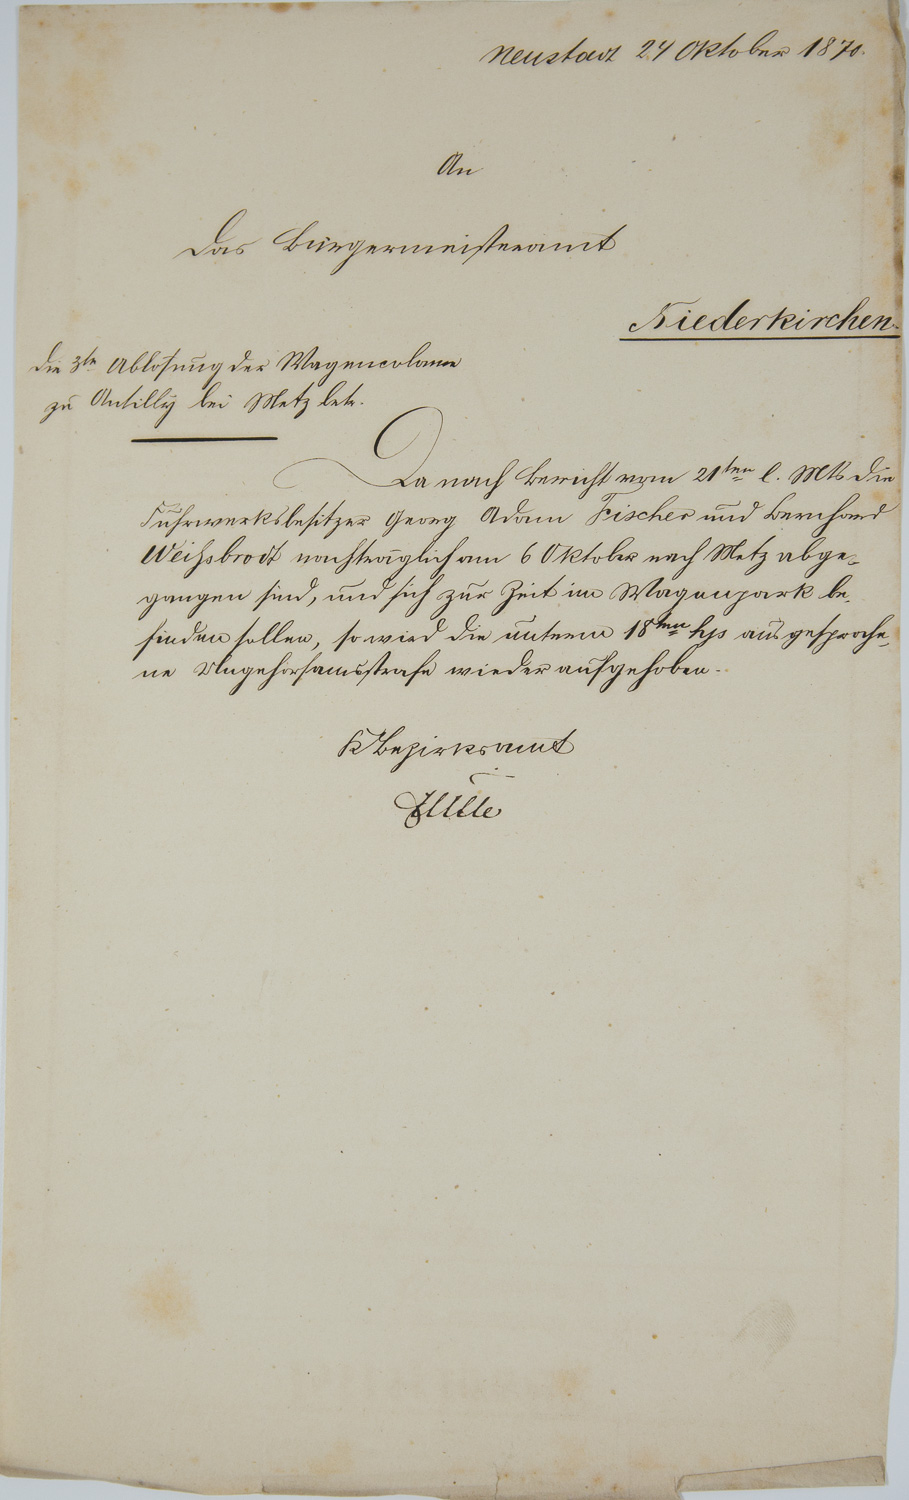 Neustadt 24 Oktober 1870.
An
Das Bürgermeisteramt
Niederkirchen.
Die 3te Ablösung der Wagencolonne
zu Antilly bei Metz betr.
Da nach Bericht vom 21ten l. Mts die
Fuhrwerksbesitzer Georg Adam Fischer und Bernhard
Weihsbrodt nachträglich am 6 Oktober nach Metz abge-
gangen sind, und sich zur Zeit im Wagenpark be-
finden sollen, so wird die unterm 18ten hjs ausgesproche-
ne Ungehorsamsstrafe wieder aufgehoben.
K Bezirksamt